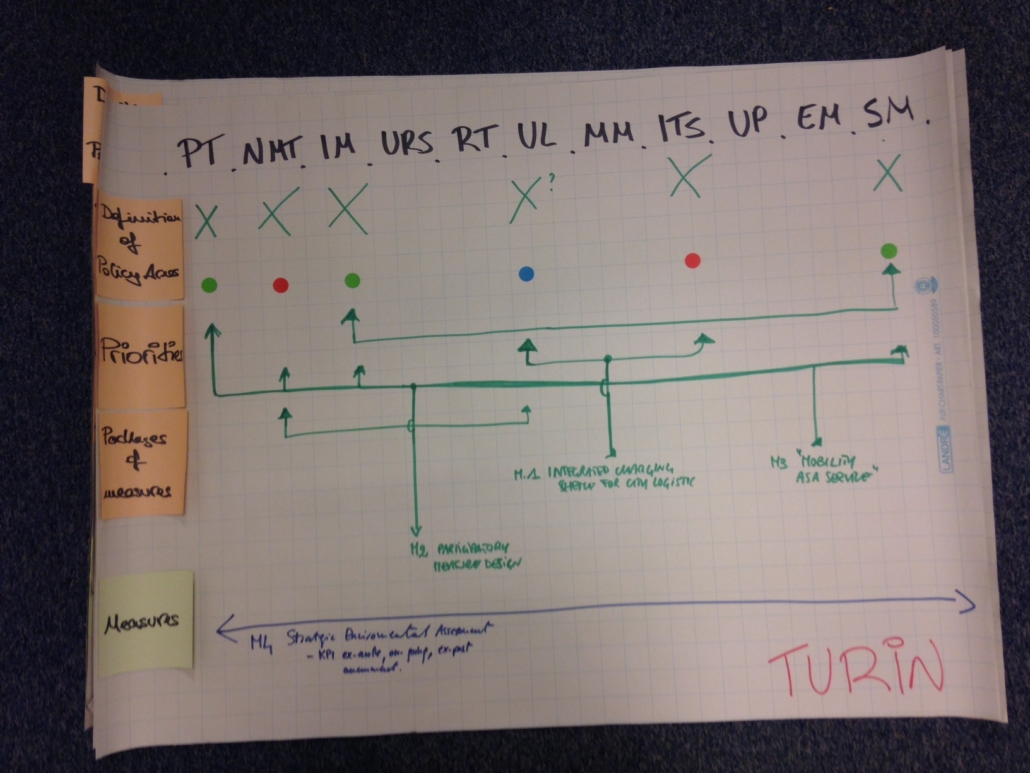 PT . NMT . IM . URS . RT . UL . MM . ITS . UP . EM . SM .
X X X X ? X X
Definition
of
Policy Areas
Priorities
Packages
of
measures
Measures
M.1 INTEGRATED CHARGING
FOR CITY LOGISTIC
M3 "MOBILITY
AS A SERVICE"
M2 PARTICIPATORY
MEASURE DESIGN
M4 Strategic Enviromental Assessment
- KPI ex-ante, ex-post
TURIN
LANDRÉ